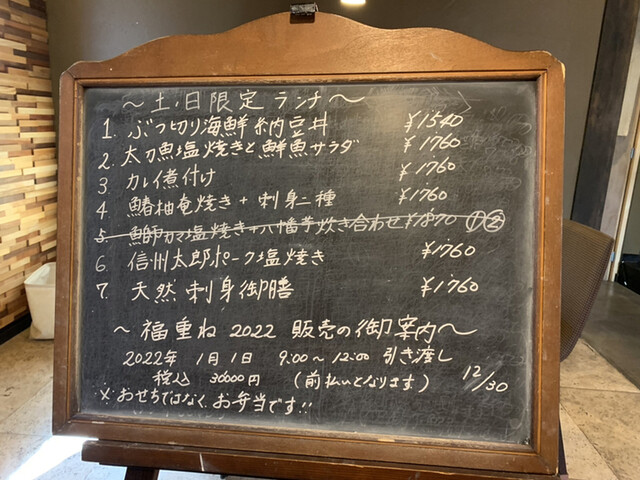 ～土.日限定 ランチ～
1. ぶつ切り海鮮納豆丼 ¥1540
2. 太刀魚塩焼きと鮮魚サラダ ¥1760
3 カレイ煮付け ¥1760
4 鰆柚庵焼き+刺身二種 ¥1760
5. 鰤カマ塩焼き+八幡芋炊き合わせ ¥1870 ①②
6. 信州太郎ポーク塩焼き ¥1760
7. 天然刺身御膳 ¥1760
～福重ね 2022 販売の御案内～
2022年 1月1日 9:00～12:00 引き渡し
税込 30000円 (前払いとなります) 12/30
※おせちではなくお弁当です!!